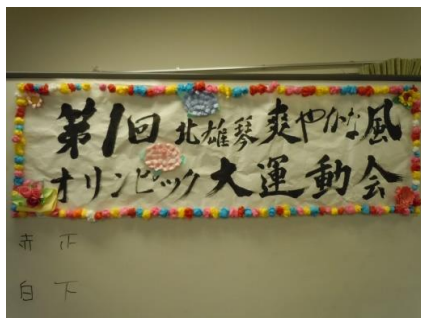 第1回北雄琴爽やかな風
オリンピック大運動会
赤 正
白 下